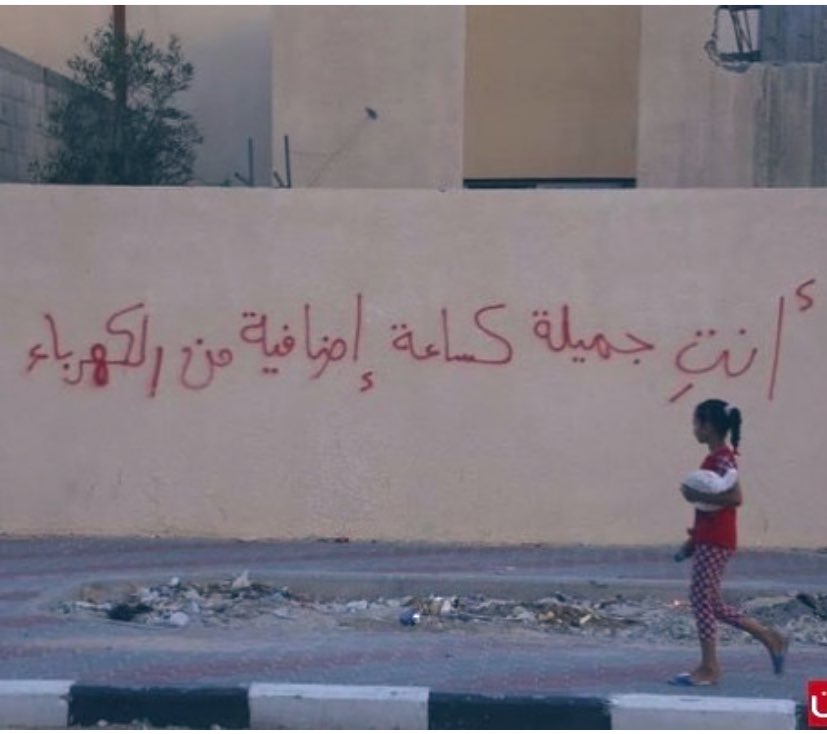 أنتِ جميلة كساعة إضافية من الكهرباء